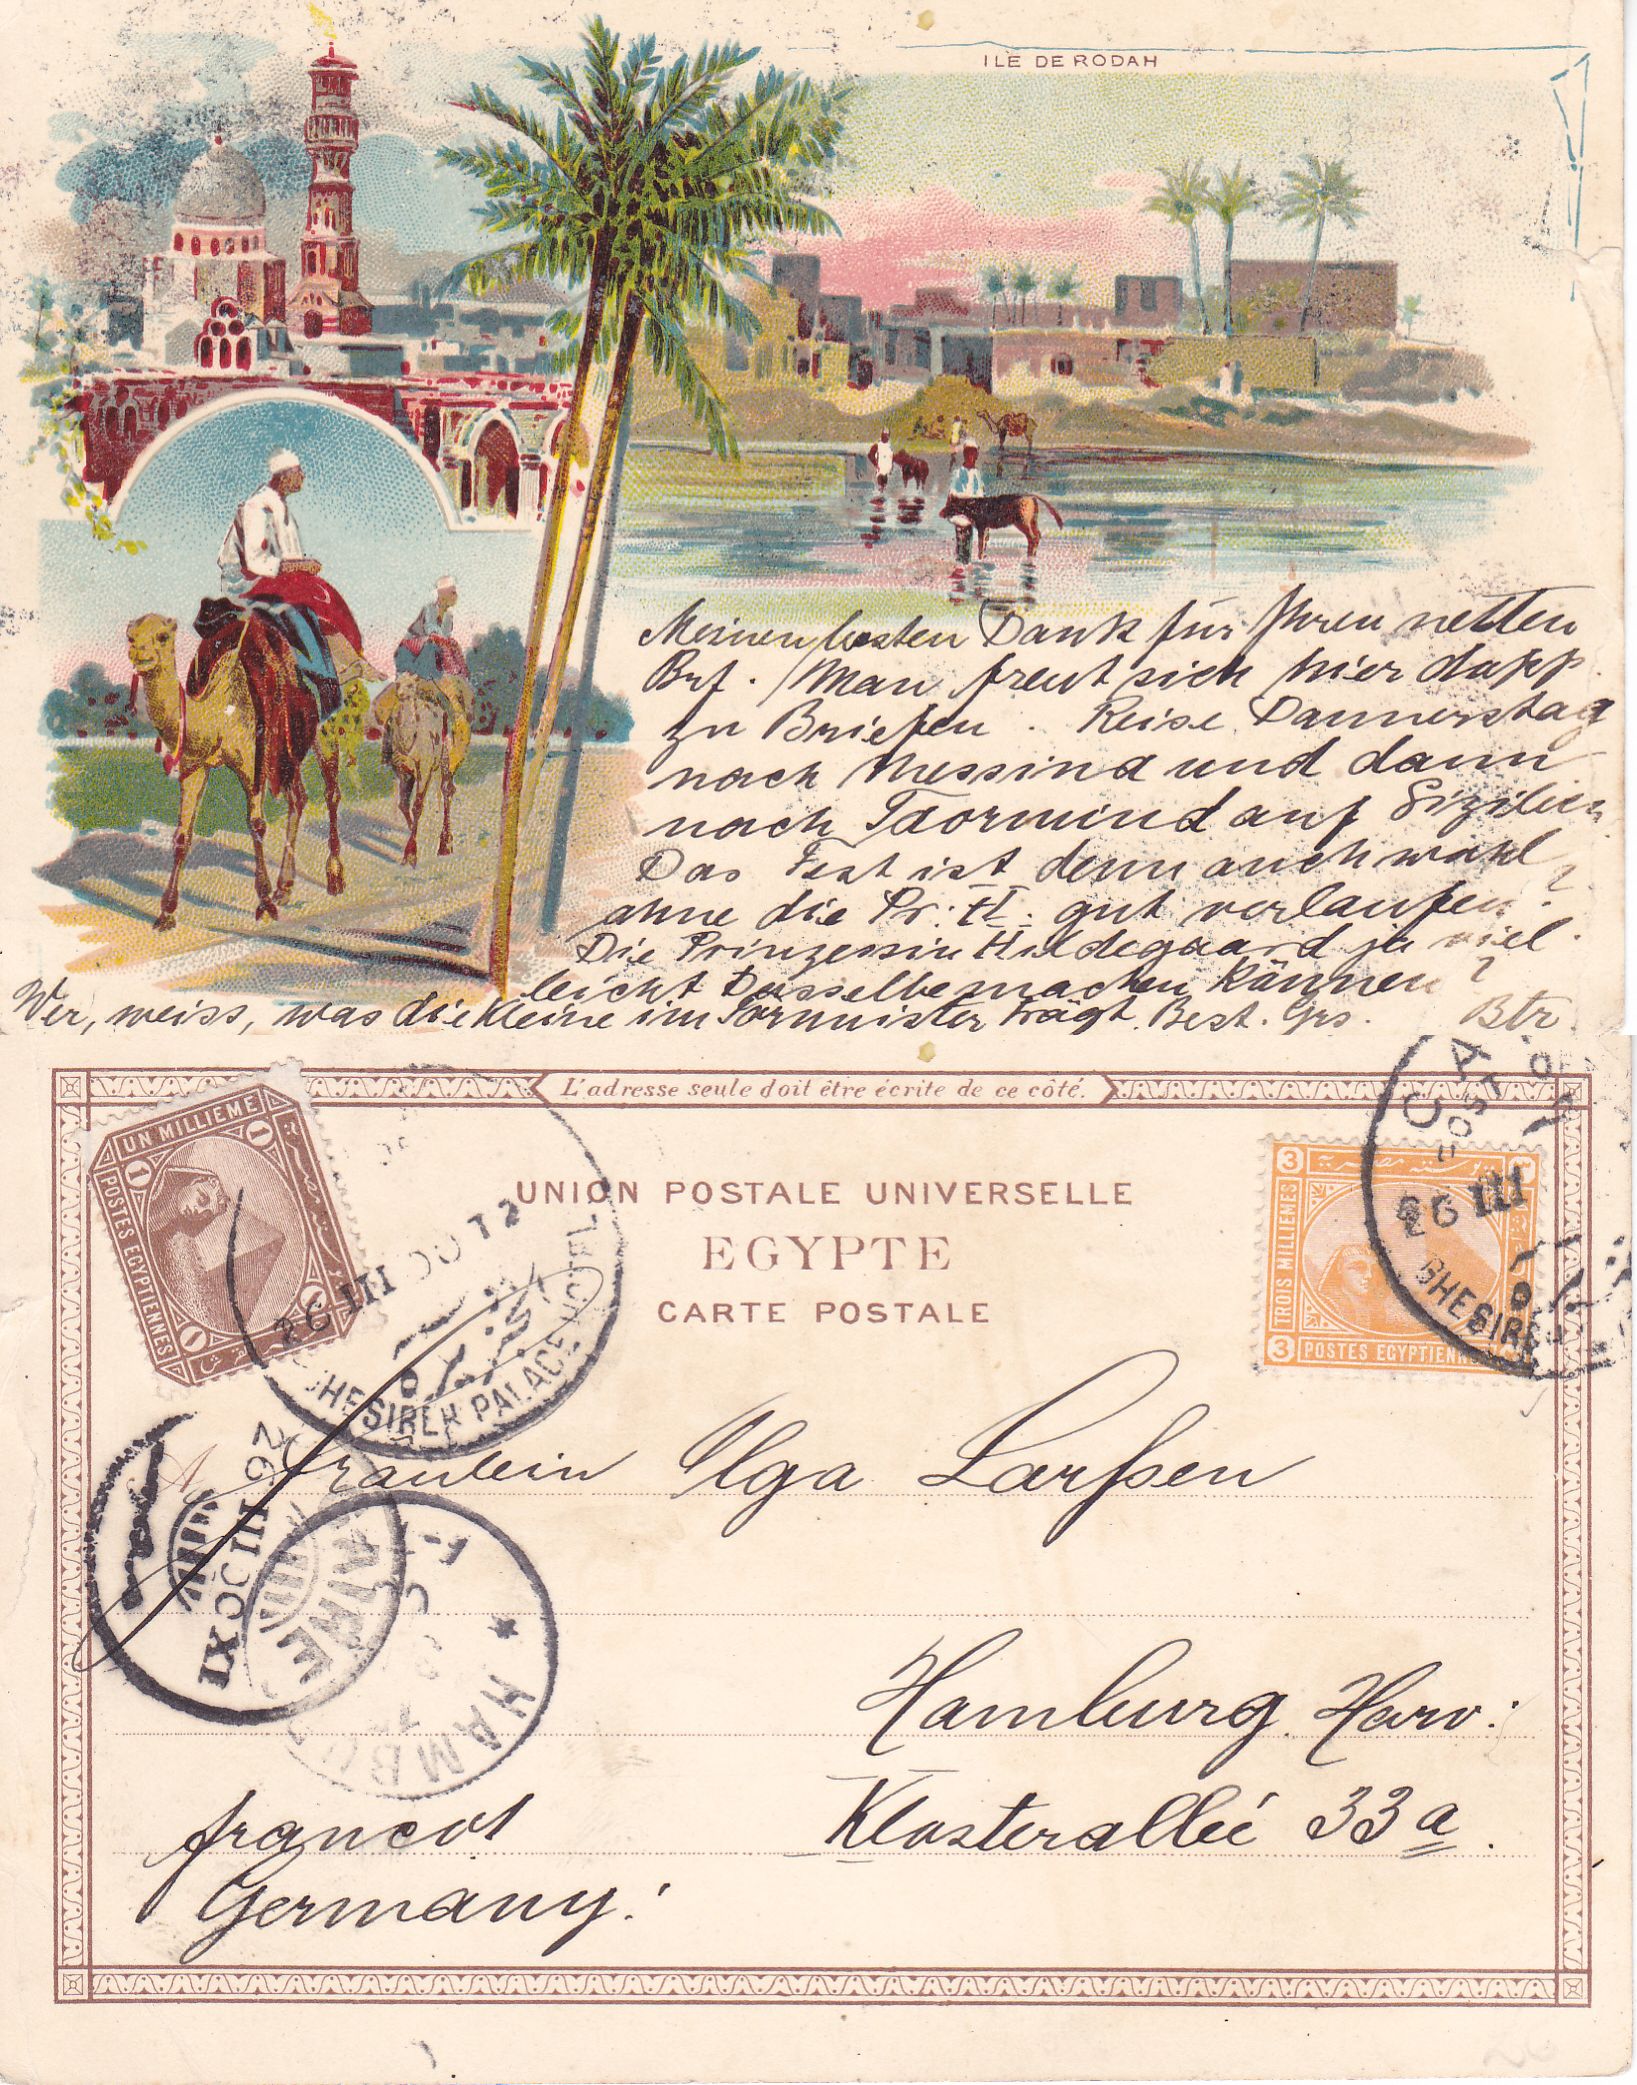 ILE DE RODAH
Meinen besten Dank für Ihren netten
Brf. Man freut sich hier dopp.
zu Briefen. Reise Dannerstag
nach Messina und dann
nach Taormina auf Sizilien
Das Fest ist denn auch wohl
ohne die Pr. II. gut verlaufen?
Die Prinzessin Hildegaard ja viel
leicht Dasselbe machen können?
Wer, weiss, was die Kleine im Tornnister trägt. Best. Grs. Btr.
L'adresse seule doit être écrite de ce côté.
UNION POSTALE UNIVERSELLE
EGYPTE
CARTE POSTALE
UN MILLIEME
1
1
1
1
POSTES EGYPTIENNES
3
3
3
٣
بوسته مصريه
TROIS MILLIEMES
POSTES EGYPTIENN
26 III 00 T2
GHESIREH PALACE HOTEL
CA
POST
26 III
GHESIRE
26 III 00 XI
AIRE
HAMBU
Fräulein Olga Larßen
Hamburg Harv:
Klosterallée 33a.
francol
Germany!